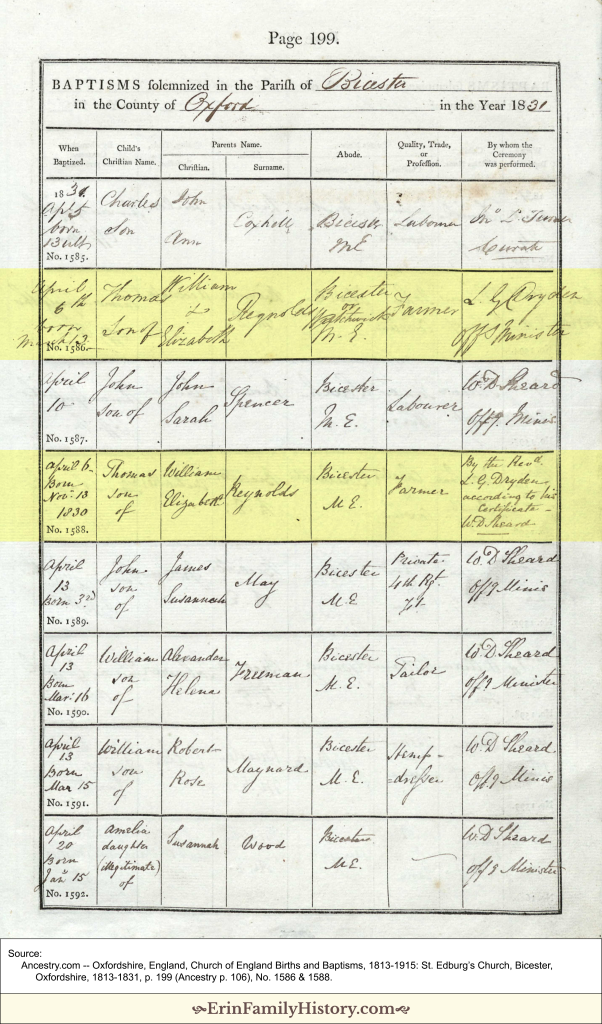 Page 199.
BAPTISMS solemnized in the Parish of Bicester
in the County of Oxford in the Year 1831
When Baptized.
Child's Christian Name.
Parents Name.
Christian.
Surname.
Abode.
Quality, Trade, or Profession.
By whom the Ceremony was performed.
1831.
Apl 5
born
13 ult
No. 1585.
Charles
Son
John
Ann
Bicester
M E
Labourer
Curate
April
6th
born
March 3
No. 1586.
Thomas
Son of
William
&
Elizabeth
Reynolds
Bicester
or
M. E.
Farmer
L G Dryden
off g Minister
April
10
No. 1587.
John
son of
John
Sarah
Spencer
Bicester
M. E.
Labourer
W D Sheard
Off g. Minis
April 6
Born
Nov. 13
1830
No. 1588.
Thomas
son
of
William
Elizabeth
Reynolds
Bicester
M E.
Farmer
By the Revd.
L. G. Dryden
according to his
Certificate –
W D Sheard
April
13
Born 3rd
No. 1589.
John
son
of
James
Susannah
May
Bicester
M. E
Private
4th Rgt.
W D Sheard
off g Minis
April
13
Born
Mar: 16
No. 1590.
William
son
of
Alexander
Helena
Freeman
Bicester
M. E.
Tailor
W. D Sheard
off g Minister
April
13
Born
Mar 15
No. 1591.
William
son
of
Robert
Rose
Maynard
Bicester
M E.
Hemp-
=dresser
W D Sheard
off g Minis
April
20
Born
Jany 15
No. 1592.
Amelia
daughter
(illegitimate)
of
Susannah
Wood
Bicester
M E.
W. D Sheard
off g Minister
Source:
Ancestry.com -- Oxfordshire, England, Church of England Births and Baptisms, 1813-1915: St. Edburg's Church, Bicester,
Oxfordshire, 1813-1831, p. 199 (Ancestry p. 106), No. 1586 & 1588.
ErinFamilyHistory.com